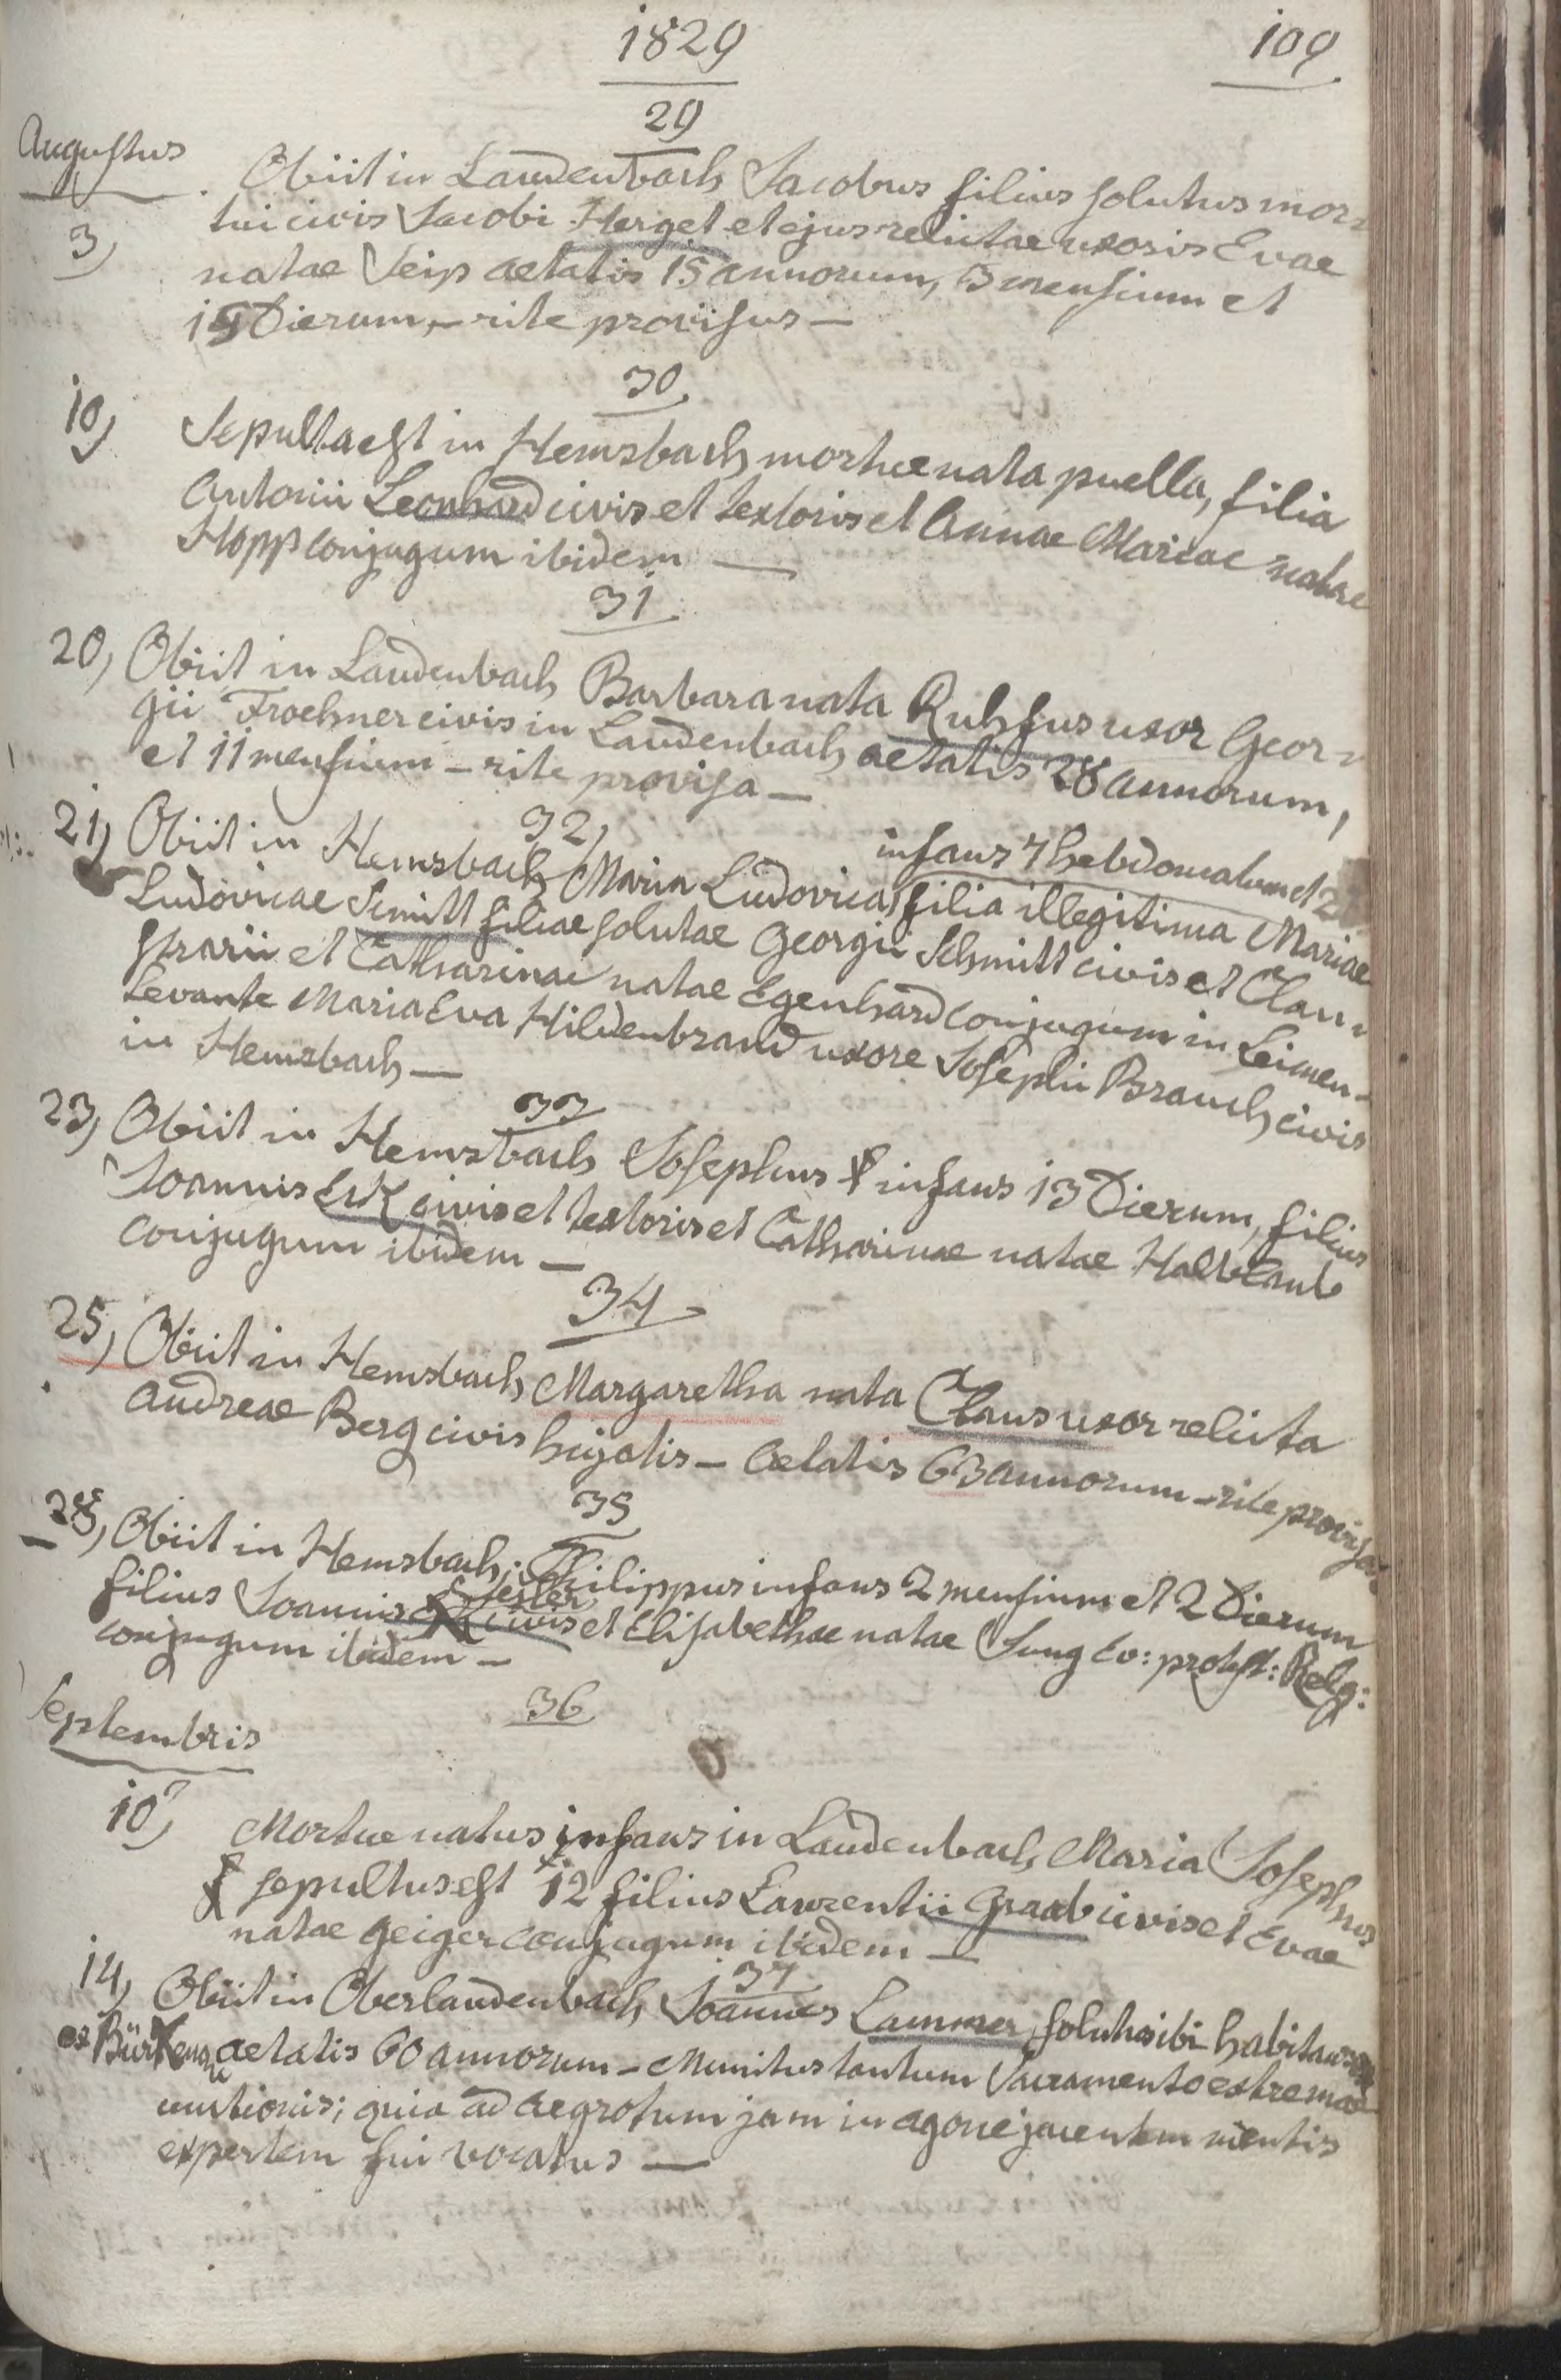 1829
109
29
Augustus
3)
Obiit in Laudenbach Jacobus filius solutus mor=
tui civis Jacobi Herget et ejus relictae uxoris Evae
natae Seip aetatis 15 annorum, 3 mensium et
19 Dierum, – rite provisus –
30
10) Sepulta est in Hemsbach mortue nata puella, filia
Antonii Leonhard civis et textoris et Annae Mariae natae
Hopp conjugum ibidem –
31
20) Obiit in Laudenbach Barbara nata Ruhfus uxor Geor=
gii Froehner civis in Laudenbach aetatis 28 annorum,
et 11 mensium – rite provisa –
32)
infans 7 hebdomatum et
21) Obiit in Hemsbach Maria Ludovica, filia illegitima Mariae
Ludovicae Scmitt filiae solutae Georgii Schmitt civis et Clau=
strarii et Catharinae natae Egenhard conjugum in Leimen-
Levante Maria Eva Hildenbrand uxore Josephi Brauch civis
in Hemsbach –
33
23) Obiit in Hemsbach Josephus infans 13 Dierum, filius
Joannis Erk civis et textoris et Catharinae natae Halblaub
conjugum ibidem –
34
25) Obiit in Hemsbach Margaretha nata Claus uxor relicta
Andreae Berg civis hujatis – aetatis 63 annorum – rite provisa
35
28) Obiit in Hemsbach; Philippus infans 2 mensium et 2 Dierum
filius Joannis civis et Elisabethae natae Jung Ev: protest: Relg:
conjugum ibidem –
36
Septembris
10) Mortue natus infans in Laudenbach Maria Josephus
sepultus est 12 filius Laurentii Graab civis et Evae
natae Geiger conjugum ibidem –
37
14) Obiit in Oberlaudenbach Joannes Lammer, solutus ibi habitans
ex aetatis 60 annorum – Munitus tantum Sacramento extremae
unctionis; quia ad aegrotum jam in agone jacentem mentis
expertem fui vocatus –